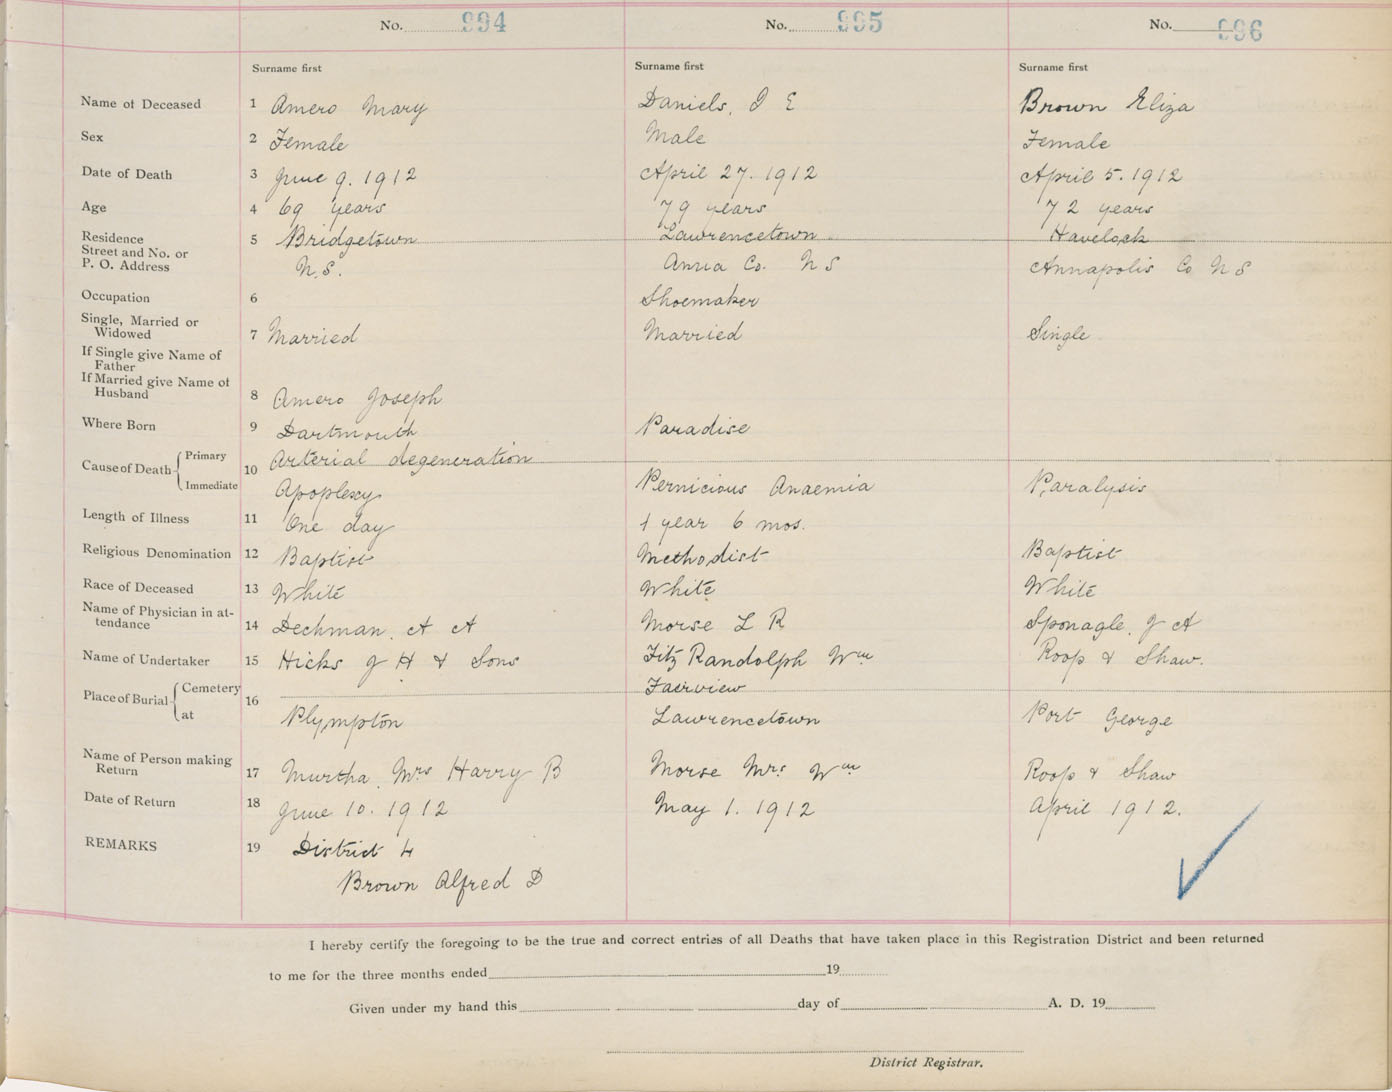 No. 994 No. 995 No. 996
Surname first Surname first Surname first
Name of Deceased 1 Amero Mary Daniels, I E Brown Eliza
Sex 2 Female Male Female
Date of Death 3 June 9. 1912 April 27. 1912 April 5. 1912
Age 4 69 years 79 years 72 years
Residence 5 Bridgetown Lawrencetown Havelock
Street and No. or
P. O. Address N.S. Anna Co. N S Annapolis Co N S
Occupation 6 Shoemaker
Single, Married or
Widowed 7 Married Married Single
If Single give Name of
Father
If Married give Name of
Husband 8 Amero Joseph
Where Born 9 Dartmouth Paradise
Cause of Death Primary 10 Arterial degeneration
Immediate Apoplexy Pernicious Anaemia Paralysis
Length of Illness 11 One day 1 year 6 mos.
Religious Denomination 12 Baptist Methodist Baptist
Race of Deceased 13 White White White
Name of Physician in at-
tendance 14 Deckman. A A Morse L R Sponagle. J A
Name of Undertaker 15 Hicks J H & Sons Fitz Randolph Wm Roop & Shaw.
Place of Burial Cemetery 16 Fairview
at Plympton Lawrencetown Port George
Name of Person making
Return 17 Murtha Mrs Harry B Morse Mrs Wm Roop & Shaw
Date of Return 18 June 10. 1912 May 1. 1912 April 1912.
REMARKS 19 District 4
Brown Alfred D
I hereby certify the foregoing to be the true and correct entries of all Deaths that have taken place in this Registration District and been returned
to me for the three months ended 19
Given under my hand this day of A. D. 19
District Registrar.